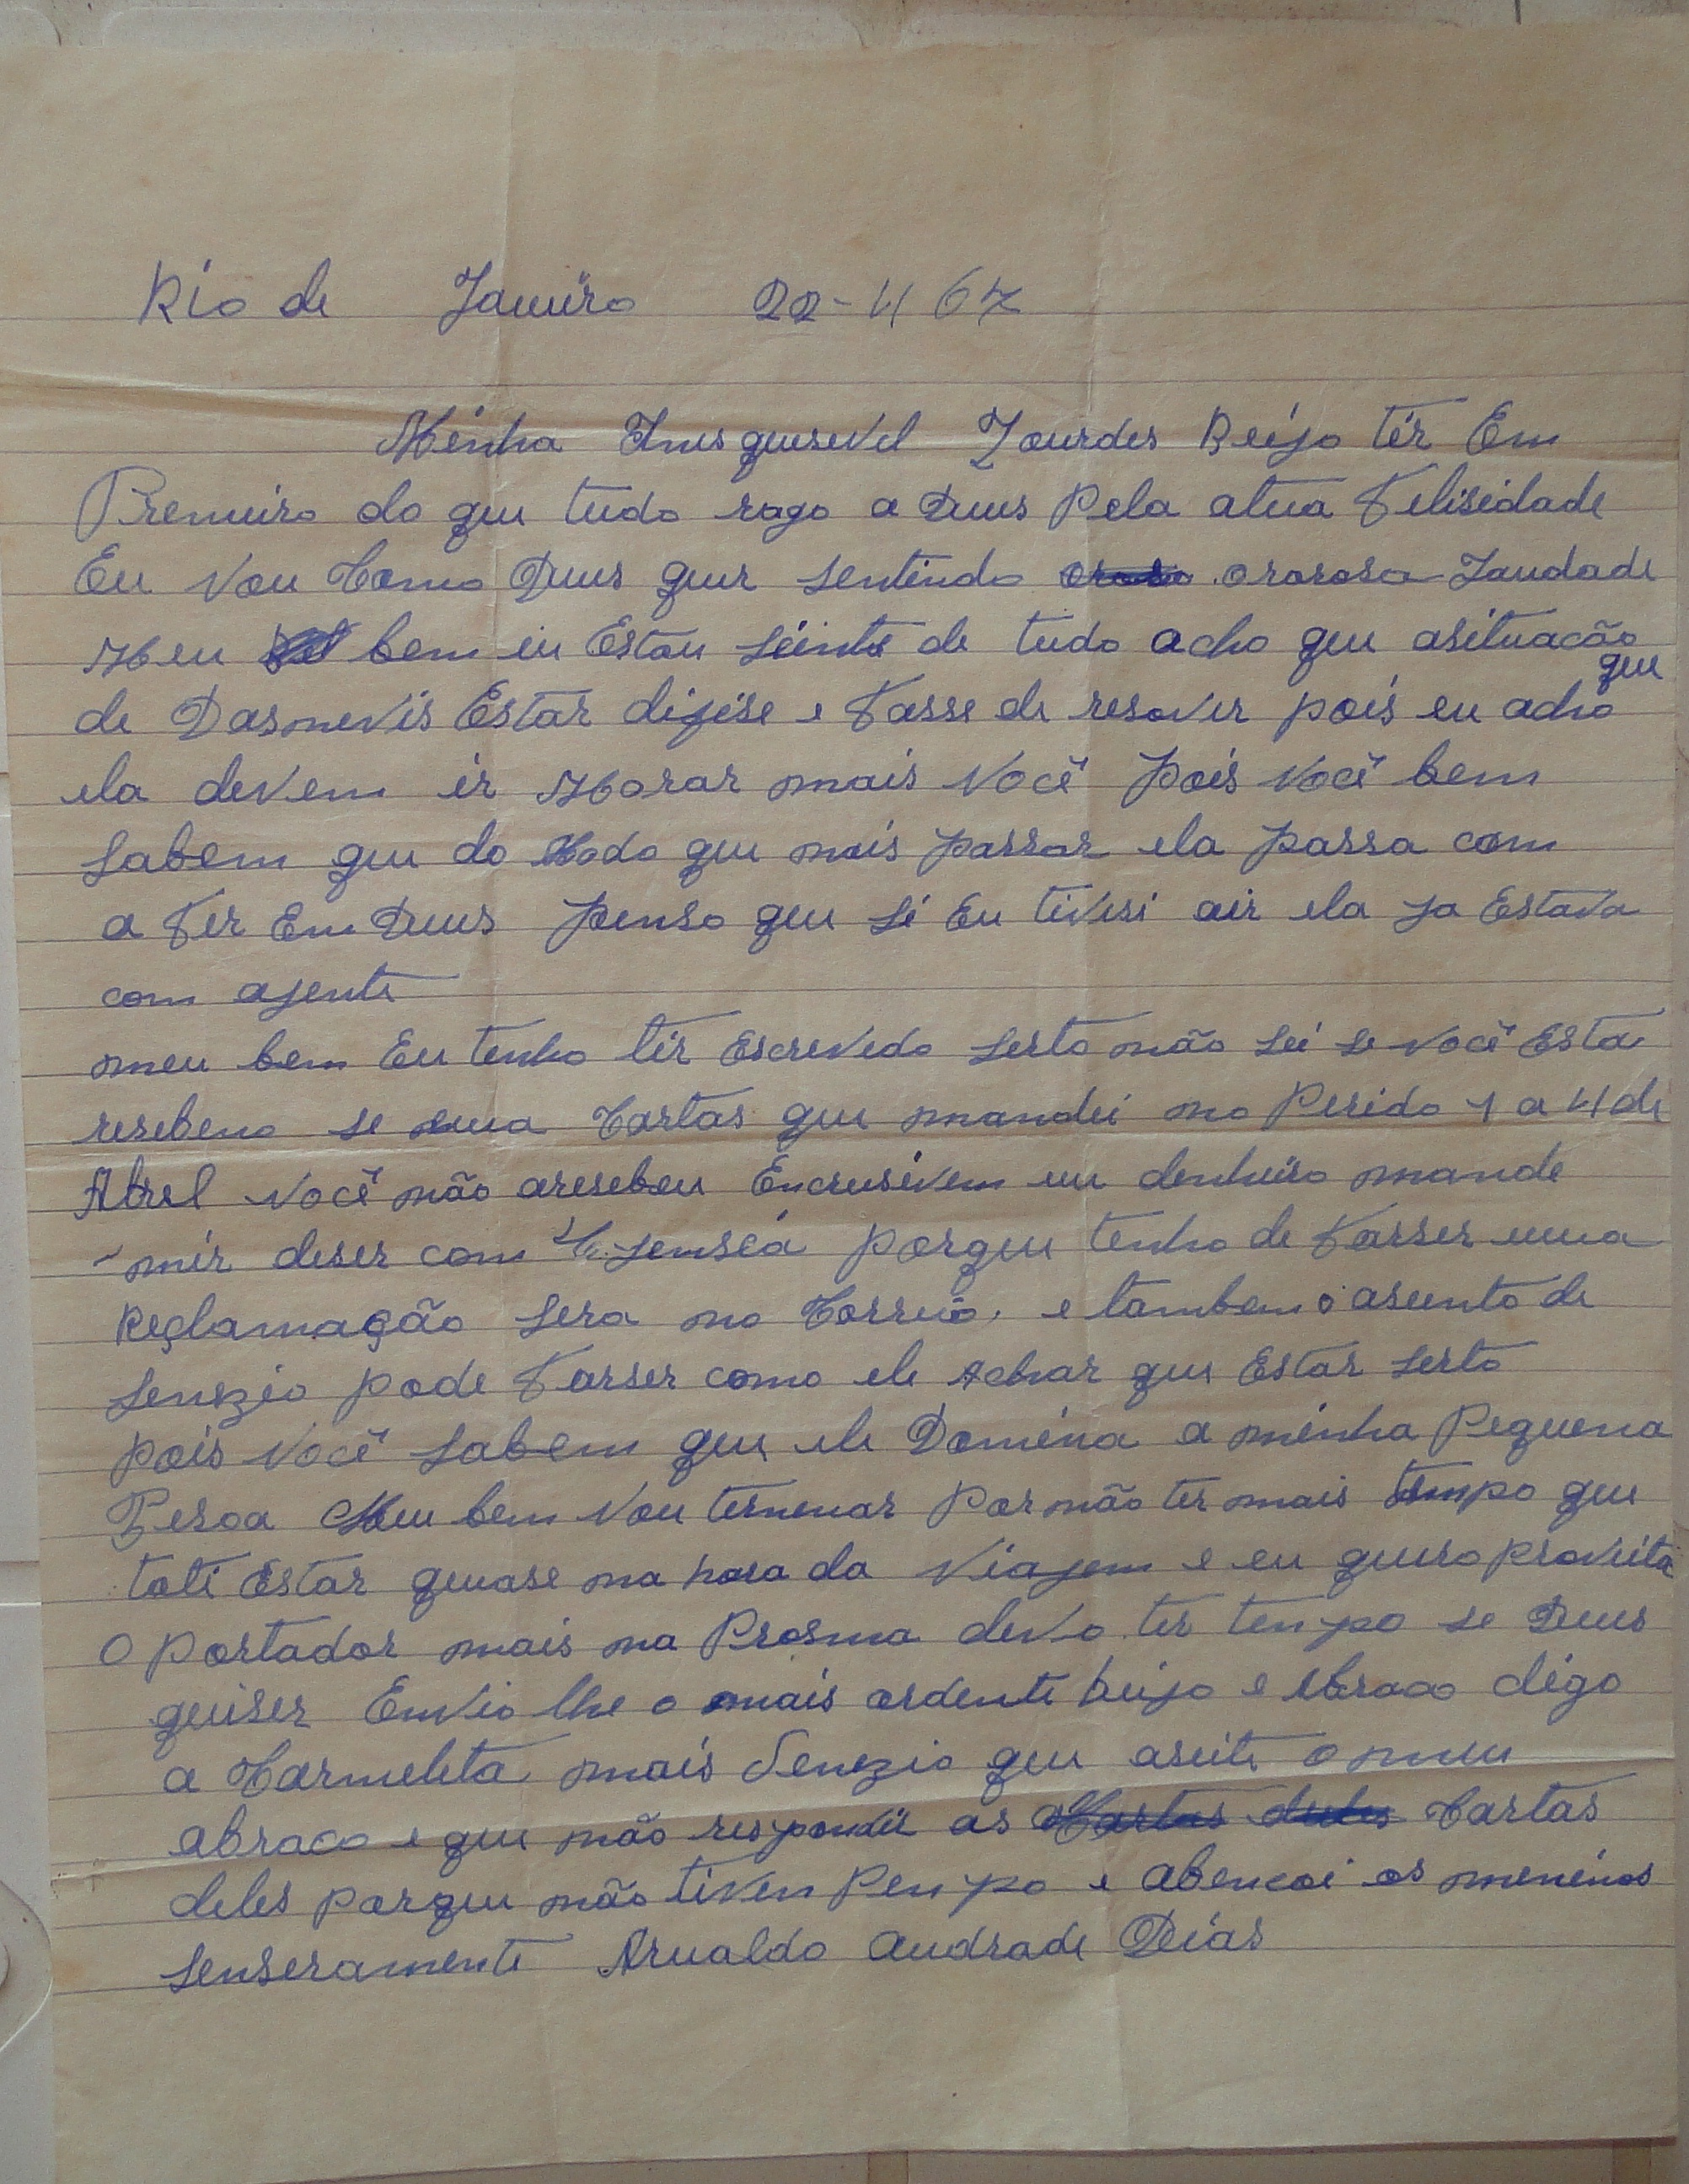 Rio de Janeiro 22-4 67
Minha Inisquesevel Lourdes Beijo tér Em
Premeiro do que tudo rogo a Deus Pela atua Felisidade
Eu Vou Como Deus quer sentindo ororosa Saudade
Meu bem eu Estou siente de tudo acho que asituacão
de Dasnevis Estar difise e Fasse de resover pois eu acho que
ela devem ir Morar mais Você pois Você bem
sabem que do Modo que nois passar ela passa com
a Fer Em Deus penso que si Eu tivesi air ela ja Estava
com ajente
meu bem Eu tenho tir Escrevedo serto não sei se você Esta
resebeno se uma Cartas que mandei no Perido 1 a 4 de
Abrel Você não aresebeu Encrusivem eu denheiro mande
mir deser com porque tenho de Fasser uma
Reclamação sera no Correio, e tambem o asunto de
Senezio pode Farser como ele Achar que Estar serto
pois Você sabem que ele Domina a minha Pequena
Pesoa Meu bem Vou termenar Por não ter mais tempo que
toti Estar quase na hora da Viajem e eu quero proveita
O portador mais na Prosma devo ter tempo se Deus
quiser Envio lhe o mais ardente beijo e Abraco digo
a Carmelita mais Senezio que aseite o meu
abraco e que não respondir as Cartas
deles porque não tiven Penpo e abencoi os meninos
senseramente Arnaldo Andrade Dias